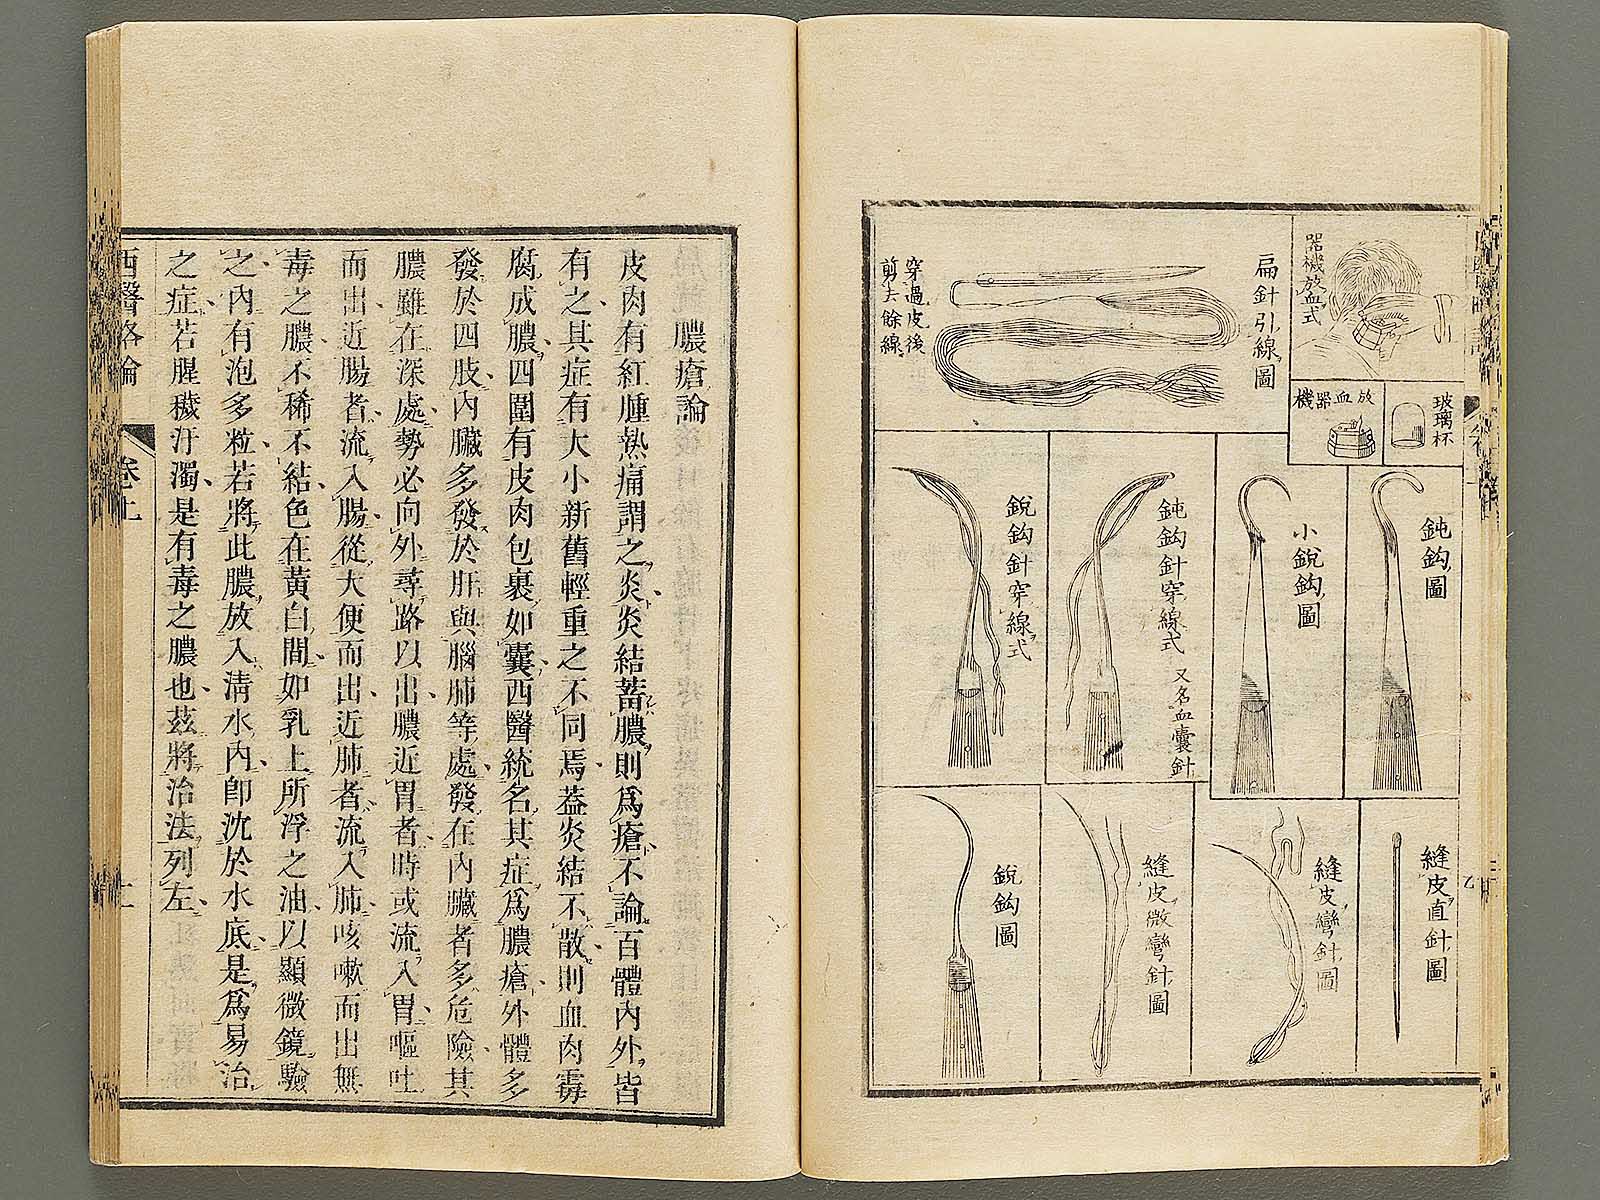 器機放血式
放血器機
玻璃杯
扁針引線圖
穿過皮後
剪去餘線
鈍鈎圖
小銳鈎圖
鈍鈎針穿線式 又名血囊針
銳鈎針穿線式
縫皮直針圖
縫皮彎針圖
縫皮微彎針圖
銳鈎圖
膿瘡論
皮肉有紅腫熱痛謂之炎炎結蓄膿則爲瘡不論百體內外皆
有之其症有大小新舊輕重之不同焉葢炎結不散則血肉霉
腐成膿四圍有皮肉包裹如囊西醫統名其症爲膿瘡外體多
發於四肢內臟多發於肝與腦肺等處發在內臟者多危險其
膿雖在深處勢必向外尋路以出膿近胃者時或流入胃嘔吐
而出近腸者流入腸從大便而出近肺者流入肺咳嗽而出無
毒之膿不稀不結色在黃白間如乳上所浮之油以顯微鏡驗
之內有泡多粒若將此膿放入淸水內卽沈於水底是爲易治
之症若腥穢汙濁是有毒之膿也茲將治法列左
西醫略論
卷上